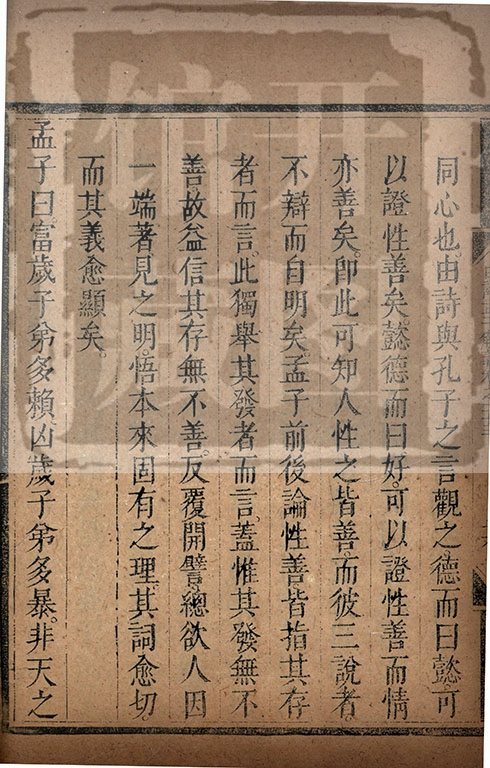 同心也。由詩與孔子之言觀之德而曰懿可
以證性善矣。懿德而曰好。可以證性善而情
亦善矣。卽此可知人性之皆善。而彼三說者。
不辯而自明矣。孟子前後論性善皆指其存
者而言。此獨舉其發者而言。蓋惟其發無不
善。故益信其存無不善。反覆開譬。總欲人因
一端著見之明。悟本來固有之理。其詞愈切。
而其義愈顯矣。
孟子曰富歲子弟多賴凶歲子弟多暴。非天之